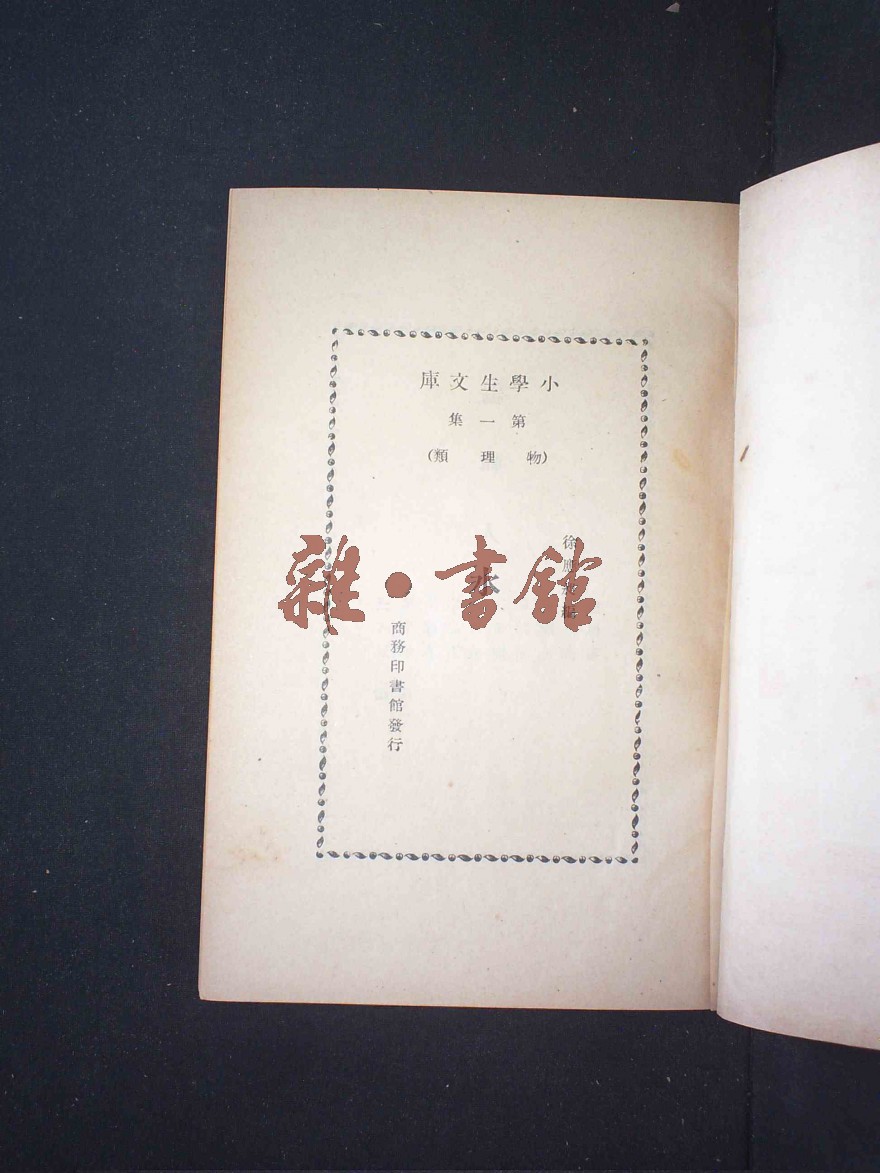 小學生文庫
第一集
(物理類)
徐應
水
商務印書館發行
雜·書館